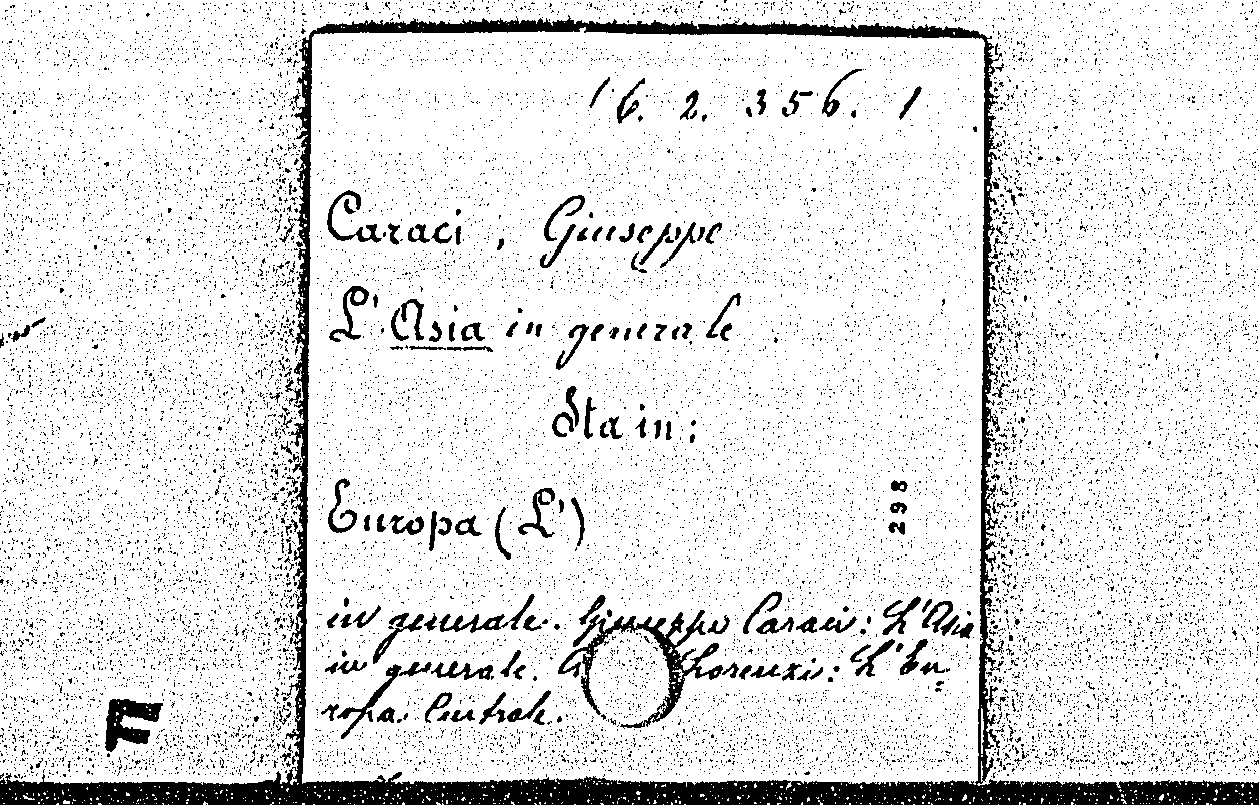 16. 2. 356. 1
Caraci, Giuseppe
L'Asia in generale.
Sta in:
Europa (L')
298
in generale. Giuseppe Caraci: L'Asia
in generale. Lorenzi: L'Eu=
ropa Centrale.